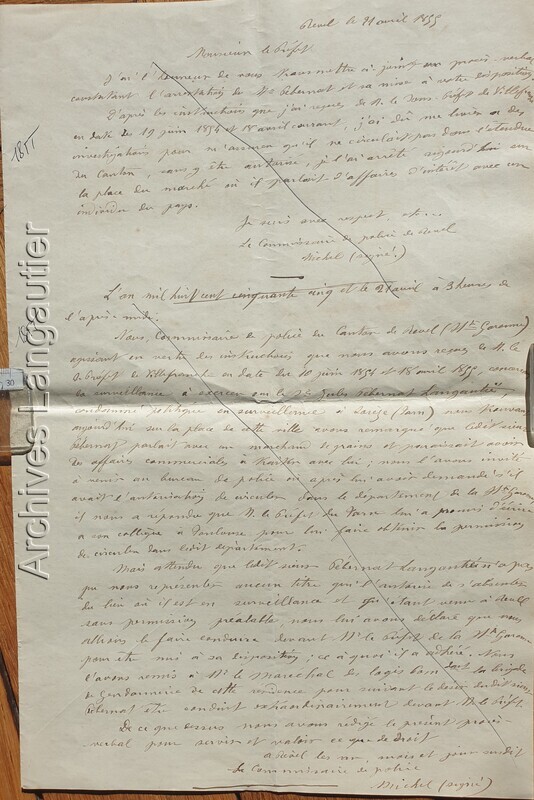 Revel le 21 avril 1855
Monsieur le Préfet
J'ai l'honneur de vous transmettre ci-joint un procès verbal
constatant l'arrestation de Mr Pébernat et sa mise à votre disposition.
D'après les instructions que j'ai reçues de M. le Sous Préfet de Villefranche
en date des 19 juin 1854 et 18 avril courant, j'ai dû me livrer à des
investigations pour m'assurer qu'il ne circulait pas dans l'étendue
du Canton, sans y être autorisé, je l'ai arrêté aujourd'hui sur
la place du marché où il parlait d'affaires d'intérêt avec un
individu du pays.
1855
Je suis avec respect, etc..
Le Commissaire de police de Revel
Michel (signé)
L'an mil huit cent cinquante cinq et le 21 avril à 3 heures de
l'après midi.
Nous, Commissaire de police du Canton de Revel (Hte Garonne)
agissant en vertu des instructions que nous avons reçues de M. le
S. Préfet de Villefranche en date des 10 juin 1854 et 18 avril 1855, concernant
la surveillance à exercer sur le Sr Jules Pébernat Langautier,
condamné politique en surveillance à Sorèze (Tarn) nous trouvant
aujourd'hui sur la place de cette ville avons remarqué que ledit sieur
Pébernat parlait avec un marchand de grains et paraissait avoir
des affaires commerciales à traiter avec lui; nous l'avons invité
à venir au bureau de police où après lui avoir demandé s'il
avait l'autorisation de circuler dans le département de la Hte Garonne
il nous a répondu que M. le Préfet du Tarn lui a promis d'écrire
à son collègue à Toulouse pour lui faire obtenir la permission
de circuler dans ledit département.
Mais attendu que ledit sieur Pébernat Langautier n'a pu
nous représenter aucun titre qui l'autorise de s'absenter
du lieu où il est en surveillance et qu'étant venu à Revel
sans permission préalable, nous lui avons déclaré que nous
allions le faire conduire devant Mr le Préfet de la Hte Garonne
pour être mis à sa disposition; ce à quoi il a adhéré. Nous
l'avons remis à Mr le Maréchal des logis de la brigade
de Gendarmerie de cette résidence pour suivant le désir dudit sieur
Pébernat être conduit extraordinairement devant M. le Préfet.
De ce que dessus nous avons rédigé le présent procès-
verbal pour servir et valoir ce que de droit
à Revel les an, mois et jour susdit
Le Commissaire de police
Michel (signé)
30
Archives Langautier